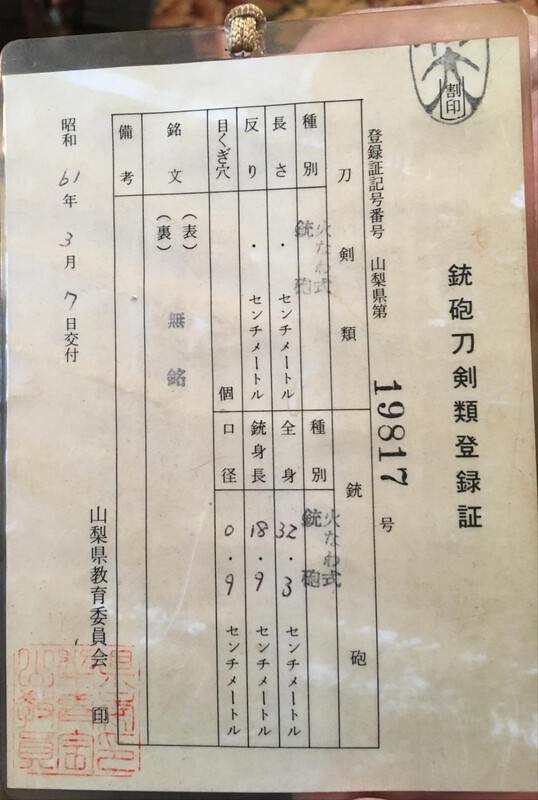 割印
銃砲刀剣類登録証
登録証記号番号 山梨県第 19817 号
刀剣類
銃砲
種別
火なわ式
銃砲
長さ ・ センチメートル
反り ・ センチメートル
目くぎ穴 個
種別
火なわ式
銃砲
全身 32・3 センチメートル
銃身長 18・9 センチメートル
口径 0・9 センチメートル
銘文
(表)
(裏)
無銘
備考
昭和61年3月7日交付
山梨県教育委員会 印